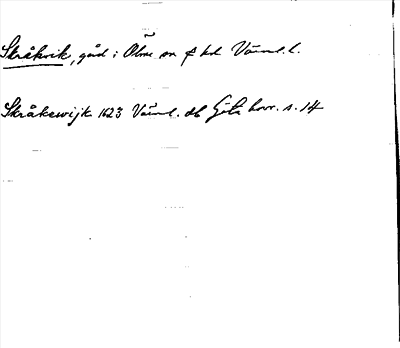 Skråkvik, gård i Ölme sn o hd Värml. l.
Skråkewijk 1623 Värml. db Göta hovr. s. 14